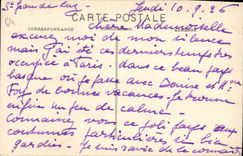 St Jean de Luz Jeudi 10. 9. 26
CARTE POSTALE
CORRESPONDANCE
Chère Mademoiselle
excusez moi de mon silence
mais j'ai été ces derniers temps
occupée à Paris. dans ce beau pays
basque où je
de bonnes vacances. Je trouve
enfin un peu de calme.
vous ce joli pays aux
coutumes particulières si bien
gardées. Je suis ravie de le